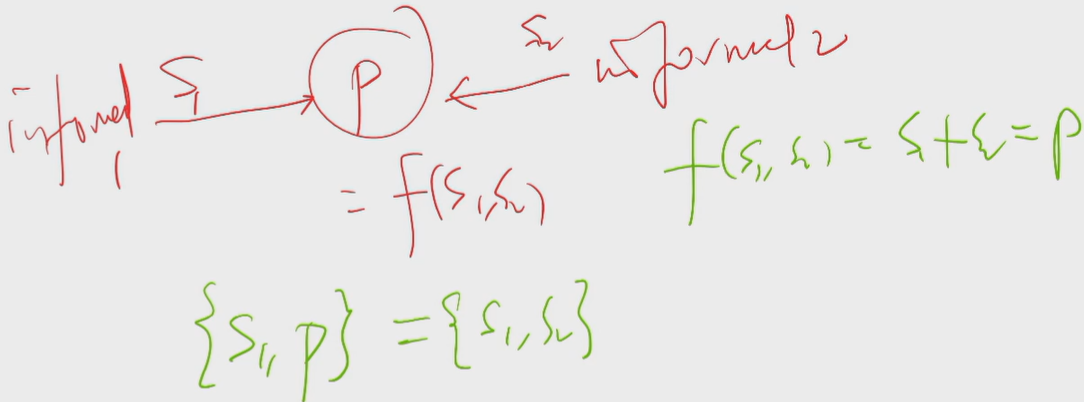 informed 1 S₁ P S₂ informed 2
= f(S₁,S₂)
f(S₁,S₂) = S₁+S₂ = P
{S₁, P} = {S₁,S₂}